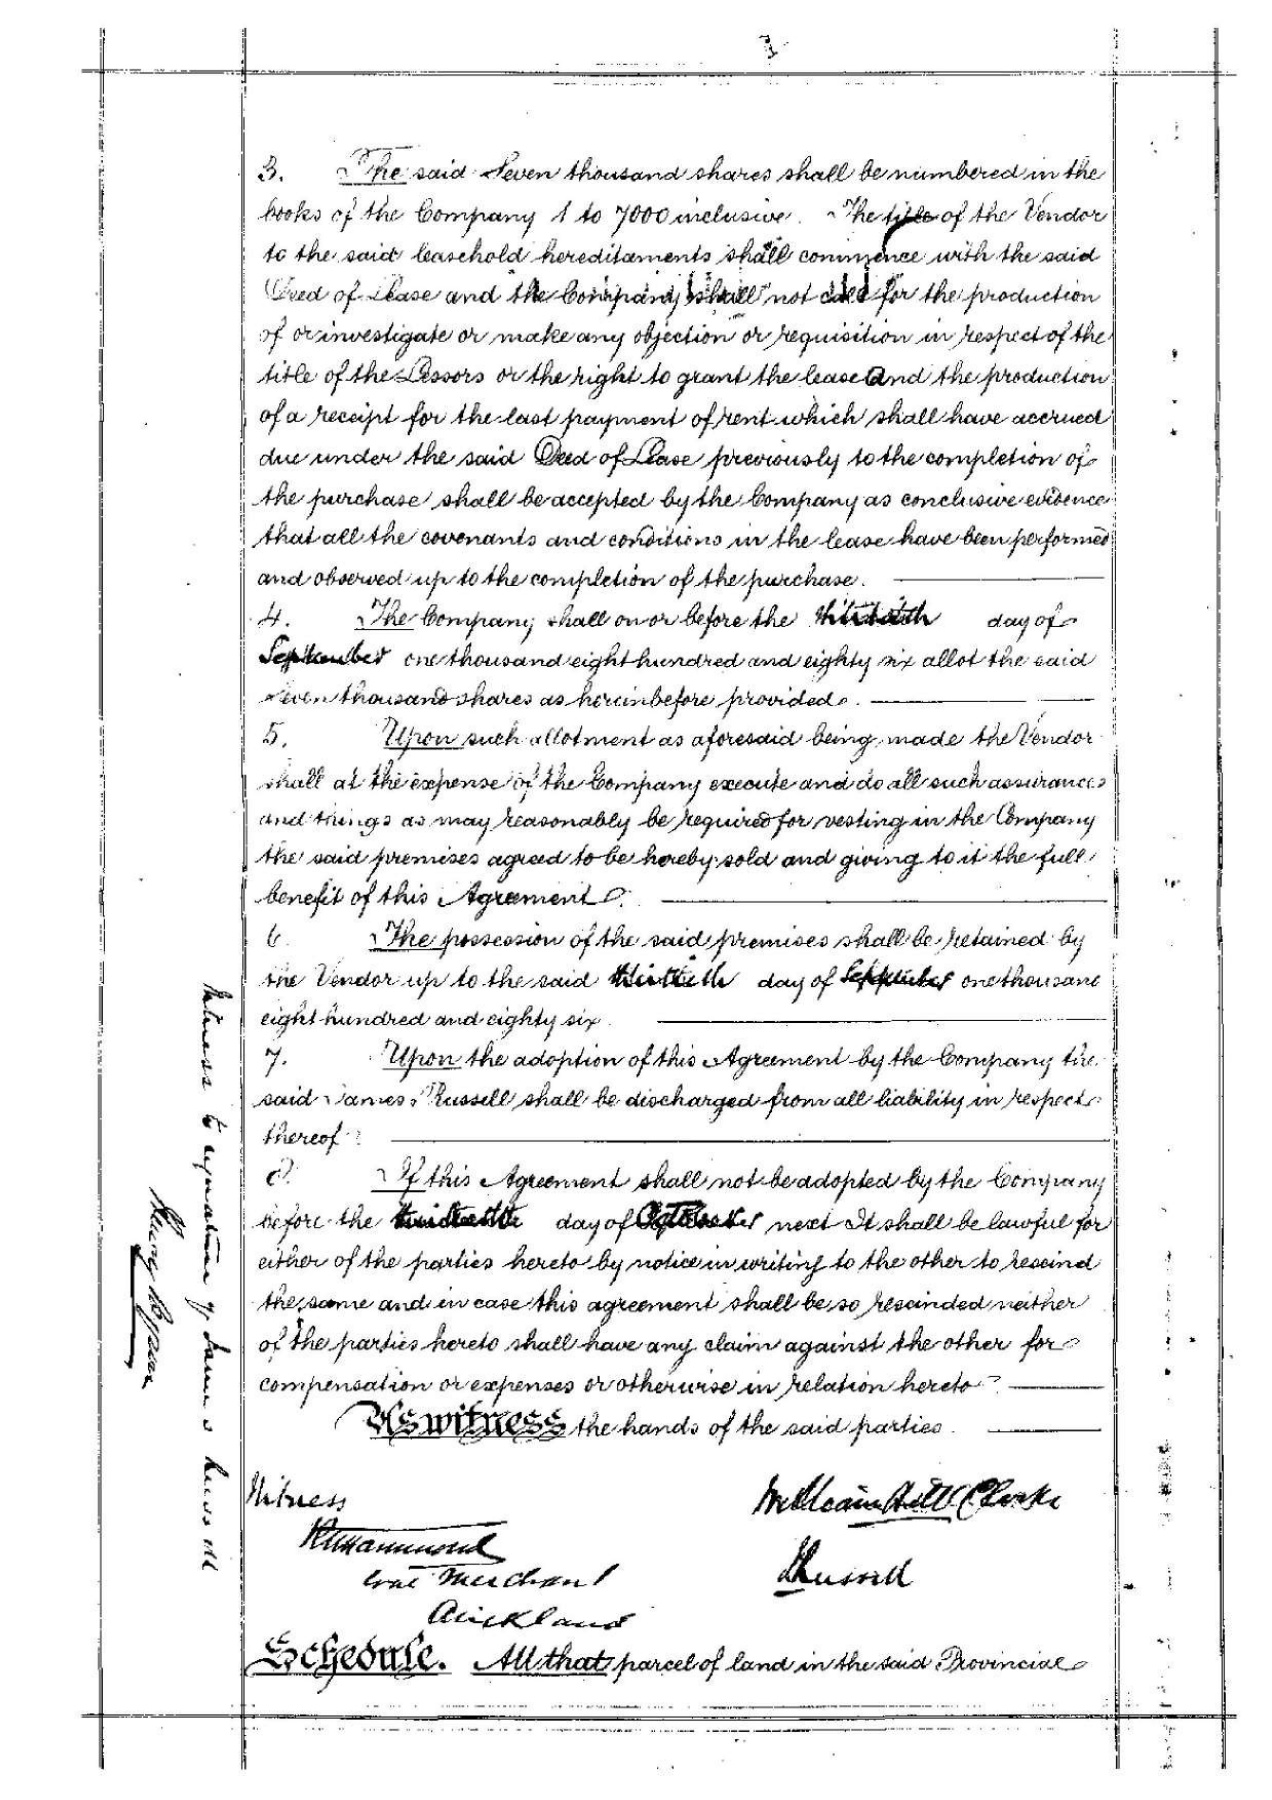 3. The said Seven thousand shares shall be numbered in the
books of the Company 1 to 7000 inclusive. The title of the Vendor
to the said leasehold hereditaments shall commence with the said
Deed of Lease and the Company shall not call for the production
of or investigate or make any objection or requisition in respect of the
title of the Lessors or the right to grant the lease And the production
of a receipt for the last payment of rent which shall have accrued
due under the said Deed of Lease previously to the completion of
the purchase shall be accepted by the Company as conclusive evidence
that all the covenants and conditions in the lease have been performed
and observed up to the completion of the purchase.
4. The Company shall on or before the thirtieth day of
September one thousand eight hundred and eighty six allot the said
Seven thousand shares as hereinbefore provided.
5. Upon such allotment as aforesaid being made the Vendor
shall at the expense of the Company execute and do all such assurances
and things as may reasonably be required for vesting in the Company
the said premises agreed to be hereby sold and giving to it the full
benefit of this Agreement.
6. The possession of the said premises shall be retained by
the Vendor up to the said thirtieth day of September one thousand
eight hundred and eighty six
7. Upon the adoption of this Agreement by the Company the
said James Russell shall be discharged from all liability in respect
thereof
8. If this Agreement shall not be adopted by the Company
before the thirtieth day of October next It shall be lawful for
either of the parties hereto by notice in writing to the other to rescind
the same and in case this agreement shall be so rescinded neither
of the parties hereto shall have any claim against the other for
compensation or expenses or otherwise in relation hereto
As witness the hands of the said parties
Witness
William Hill Clarke
Hammond
Coal Merchant
JRussell
Auckland
Schedule. All that parcel of land in the said Provincial
Witness to signature of James Russell